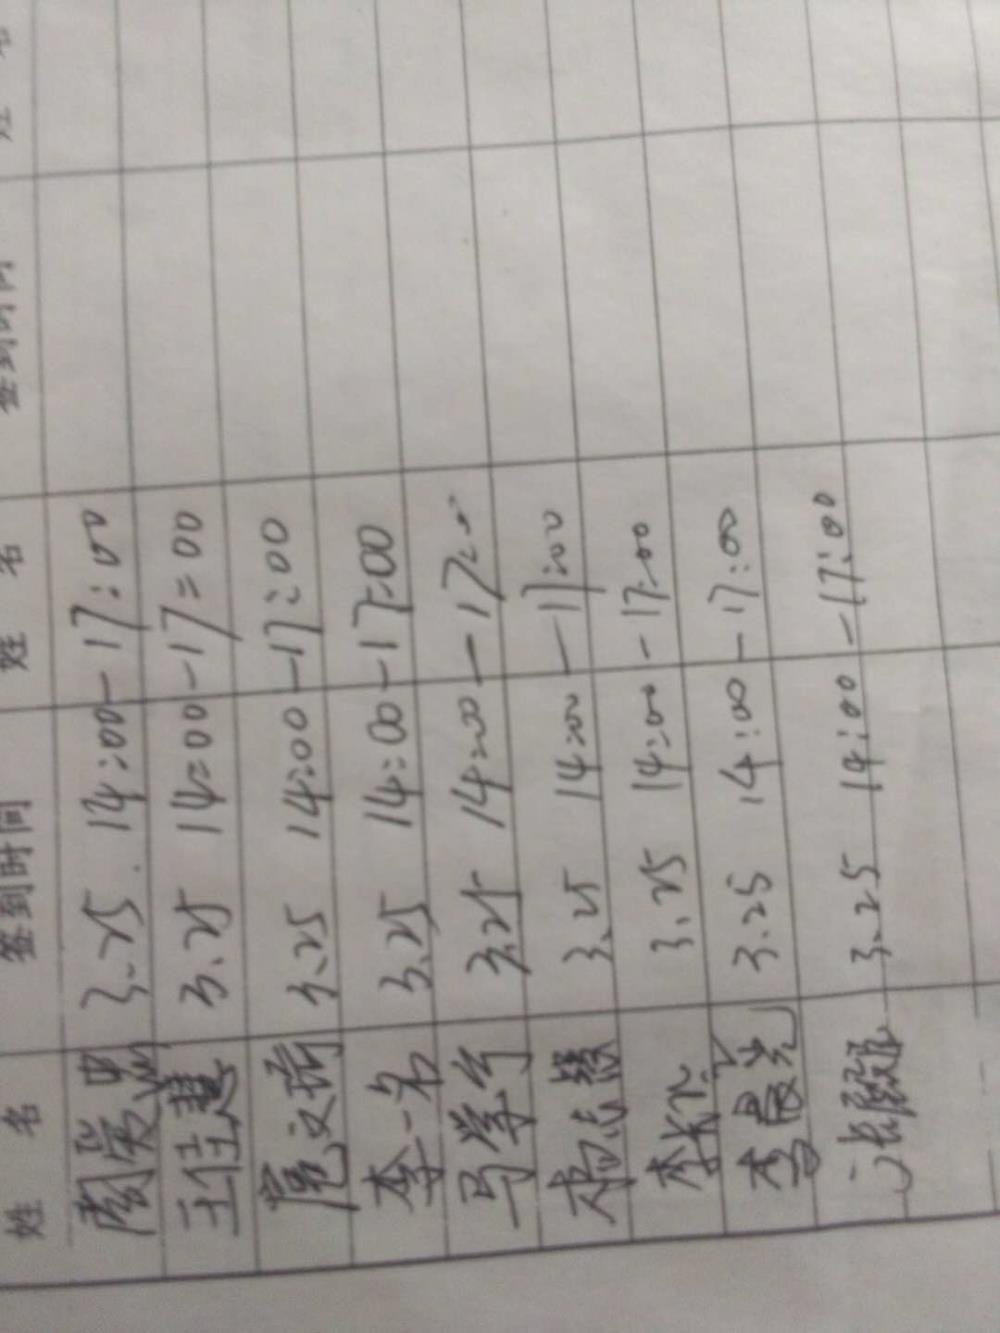 姓 名 签到时间 姓 名 签到时间 姓 名
3.25. 14:00-17:00
王佳慧 3.25 14:00-17:00
3.25 14:00-17:00
李一名 3.25 14:00-17:00
马学宁 3.25 14:00-17:00
3.25 14:00-17:00
3.25 14:00-17:00
李晨光 3.25 14:00-17:00
3.25 14:00-17:00